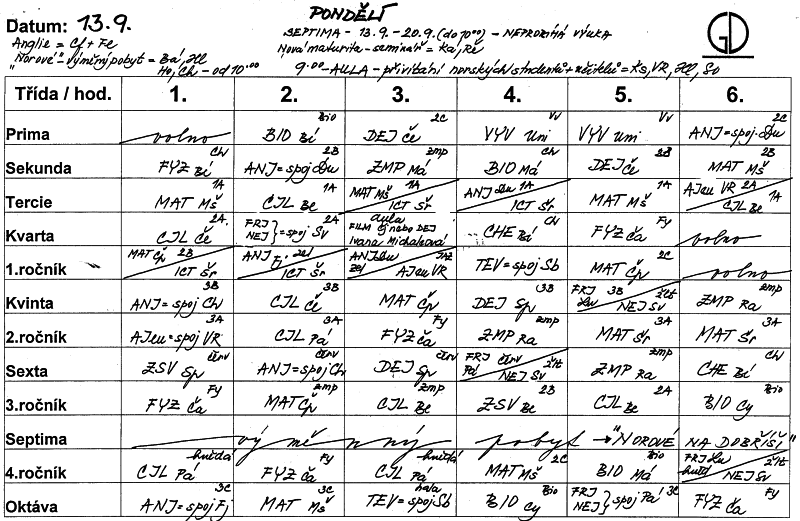 PONDĚLÍ
Datum: 13.9.
SEPTIMA - 13.9. - 20.9. (do 10⁰⁰) - NEPROBÍHÁ VÝUKA
Anglie = Cf + Fe
Nová maturita - seminář = Ka, Ře
"Norové" - výměnný pobyt = Bá, Jl
Ho, Ch - od 10.⁰⁰ 9.⁰⁰ - AULA - přivítání norských studentů + učitelů = Ks, VR, Jl, So
GD
Třída / hod. 1. 2. 3. 4. 5. 6.
Prima volno BIO Bí Bio DEJ Če 2C VYV Uni Vv VYV Uni Vv ANJ = spoj. Du 2C
Sekunda FYZ Bí Ch ANJ = spoj Du 2B ZMP Má zmp BIO Má Ch DEJ Če 2B MAT Mš 2B
Tercie MAT Mš 1A CJL Be 1A MAT Mš 1A / ICT Šr ANJ Du 1A / ICT Šr MAT Mš 1A AJeu VR 2A / CJL Be 1A
Kvarta CJL Če 2A FRJ NEJ } = spoj Sv 2A aula FILM Cj nebo DEJ Ivana Michaleková CHE Bí Ch FYZ Ča Fy volno
1.ročník MAT Čp 2B / ICT Šr ANJ Fj zel / ICT Šr ANJ Du zel / AJeu VR TEV = spoj Sb MAT Čp 2C volno
Kvinta ANJ = spoj Ch 3B CJL Če 3B MAT Čp DEJ Sp 3B FRJ Du 3B / NEJ Sv žlt ZMP Ra zmp
2.ročník AJeu = spoj VR 3A CJL Pá 3A FYZ Ča Fy ZMP Ra zmp MAT Šr 3A MAT Šr 3A
Sexta ZSV Sp červ ANJ = spoj Ch červ DEJ Sp červ FRJ Pá červ / NEJ Sv žlt ZMP Ra zmp CHE Bí Ch
3.ročník FYZ Ča Fy MAT Čp zmp CJL Be zmp ZSV Be 2B CJL Be 2A BIO Cy Bio
Septima výměnný pobyt → "NOROVÉ NA DOBŘÍŠI"
4.ročník CJL Pá hnědá FYZ Ča Fy CJL Pá hnědá MAT Mš 2C BIO Má Bio FRJ Du hněd / NEJ Sv žlt
Oktáva ANJ = spoj Fj 3C MAT Mš 3C TEV = spoj Sb hala BIO Cy Bio FRJ NEJ } spoj Pá 3C FYZ Ča Fy